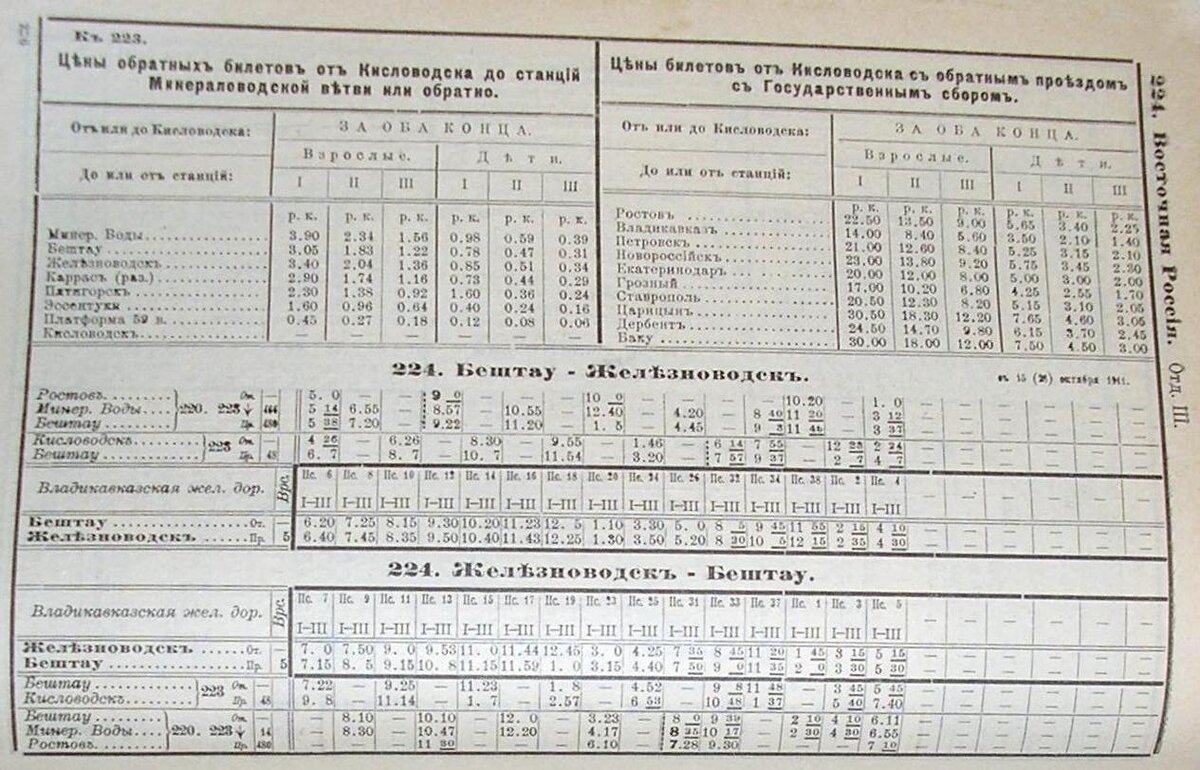 Къ 223.
Цѣны обратныхъ билетовъ отъ Кисловодска до станцій
Минераловодской вѣтви или обратно.
Отъ или до Кисловодска: ЗА ОБА КОНЦА.
Взрослые. Дѣти.
До или отъ станцій: I II III I II III
р. к. р. к. р. к. р. к. р. к. р. к.
Минер. Воды 3.90 2.34 1.56 0.98 0.59 0.39
Бештау 3.05 1.83 1.22 0.78 0.47 0.31
Желѣзноводскъ 3.40 2.04 1.36 0.85 0.51 0.34
Каррасъ (раз.) 2.90 1.74 1.16 0.73 0.44 0.29
Пятигорскъ 2.30 1.38 0.92 1.60 0.36 0.24
Эссентуки 1.60 0.96 0.64 0.40 0.24 0.16
Платформа 59 в. 0.45 0.27 0.18 0.12 0.08 0.06
Кисловодскъ — — — — — —
Цѣны билетовъ отъ Кисловодска съ обратнымъ проѣздомъ
съ Государственнымъ сборомъ.
Отъ или до Кисловодска: ЗА ОБА КОНЦА.
Взрослые. Дѣти.
До или отъ станцій: I II III I II III
р. к. р. к. р. к. р. к. р. к. р. к.
Ростовъ 22.50 13.50 9.00 5.65 3.40 2.25
Владикавказъ 14.00 8.40 5.60 3.50 2.10 1.40
Петровскъ 21.00 12.60 8.40 5.25 3.15 2.10
Новороссійскъ 23.00 13.80 9.20 5.75 3.45 2.30
Екатеринодаръ 20.00 12.00 8.00 5.00 3.00 2.00
Грозный 17.00 10.20 6.80 4.25 2.55 1.70
Ставрополь 20.50 12.30 8.20 5.15 3.10 2.05
Царицынъ 30.50 18.30 12.20 7.65 4.60 3.05
Дербентъ 24.50 14.70 9.80 6.15 3.70 2.45
Баку 30.00 18.00 12.00 7.50 4.50 3.00
224. Восточная Россія. Отд. III.
224. Бештау - Желѣзноводскъ.
съ 15 (28) октября 1911.
Ростовъ От. — 5. 0 — — 9 0 — — — 10 0 — — — — 10.20 — 1. 0
Минер. Воды 220. 223 5 14 6.55 — 8.57 — 10.55 — 12.40 — 4.20 — 8 40 11 20 — 3 12
Бештау Пр. 5 38 7.20 — 9.22 — 11.20 — 1. 5 — 4.45 — 9 3 11 46 — 3 37
Кисловодскъ 223 От. — 4 26 — 6.26 — 8.30 — 9.55 — 1.46 — 6 14 7 55 — 12 28 2 24
Бештау Пр. 48 6. 7 — 8. 7 — 10. 7 — 11.54 — 3.20 — 7 57 9 37 — 2 7 4 7
Владикавказская жел. дор. Врс. Пс. 6 Пс. 8 Пс. 10 Пс. 12 Пс. 14 Пс. 16 Пс. 18 Пс. 20 Пс. 24 Пс. 26 Пс. 32 Пс. 34 Пс. 38 Пс. 2 Пс. 4
I–III I–III I–III I–III I–III I–III I–III I–III I–III I–III I–III I–III I–III I–III I–III
Бештау От. 6.20 7.25 8.15 9.30 10.20 11.23 12. 5 1.10 3.30 5. 0 8 5 9 45 11 55 2 15 4 10
Желѣзноводскъ Пр. 5 6.40 7.45 8.35 9.50 10.40 11.43 12.25 1.30 3.50 5.20 8 20 10 5 12 15 2 35 4 30
224. Желѣзноводскъ - Бештау.
Владикавказская жел. дор. Врс. Пс. 7 Пс. 9 Пс. 11 Пс. 13 Пс. 15 Пс. 17 Пс. 19 Пс. 23 Пс. 25 Пс. 31 Пс. 33 Пс. 37 Пс. 1 Пс. 3 Пс. 5
I–III I–III I–III I–III I–III I–III I–III I–III I–III I–III I–III I–III I–III I–III I–III
Желѣзноводскъ От. 7. 0 7.50 9. 0 9.53 11. 0 11.44 12.45 3. 0 4.25 7 35 8 45 11 20 1 45 3 15 5 15
Бештау Пр. 5 7.15 8. 5 9.15 10. 8 11.15 11.59 1. 0 3.15 4.40 7 50 9 0 11 35 2 0 3 30 5 30
Бештау 223 От. — 7.22 — 9.25 — 11.23 — 1. 8 — 4.52 — 9 8 11 48 — 3 45 5 45
Кисловодскъ Пр. 48 9. 8 — 11.14 — 1. 7 — 2.57 — 6 53 — 10 48 1 37 — 5 40 7.40
Бештау От. — — 8.10 — 10.10 — 12. 0 — 3.23 — 8 0 9 39 — 2 10 4 10 6.11
Минер. Воды 220. 223 14 — 8.30 — 10.47 — 12.20 — 4.17 — 8 35 10 17 — 2 30 4 30 6.55
Ростовъ Пр. — — — 11 30 — — — 6.10 — 7.28 9.30 — — — 7 10